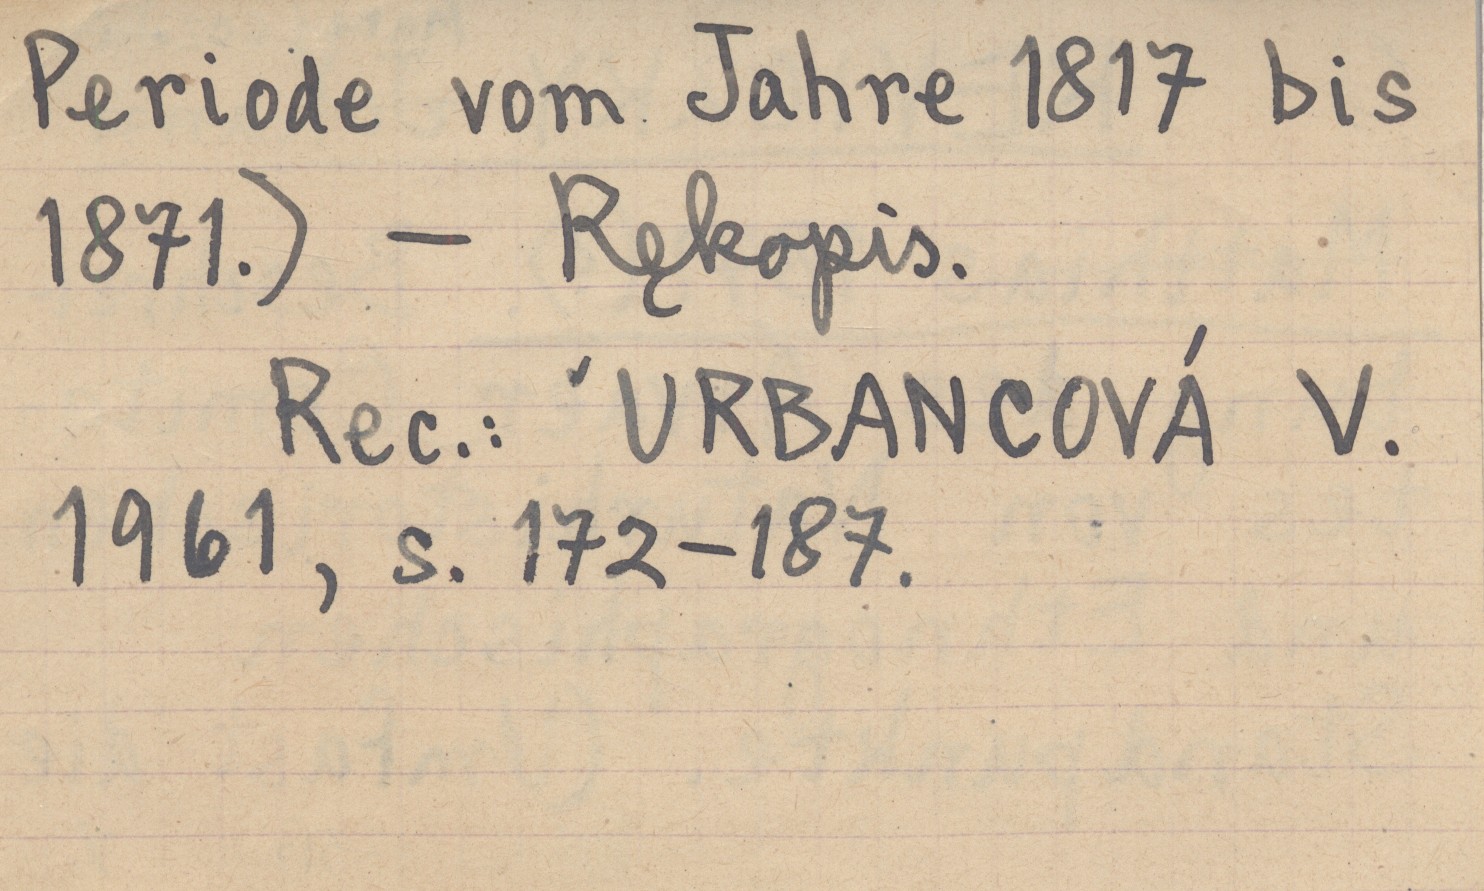 Periode vom Jahre 1817 bis
1871.) — Rękopis.
Rec.: URBANCOVÁ V.
1961, s. 172-187.